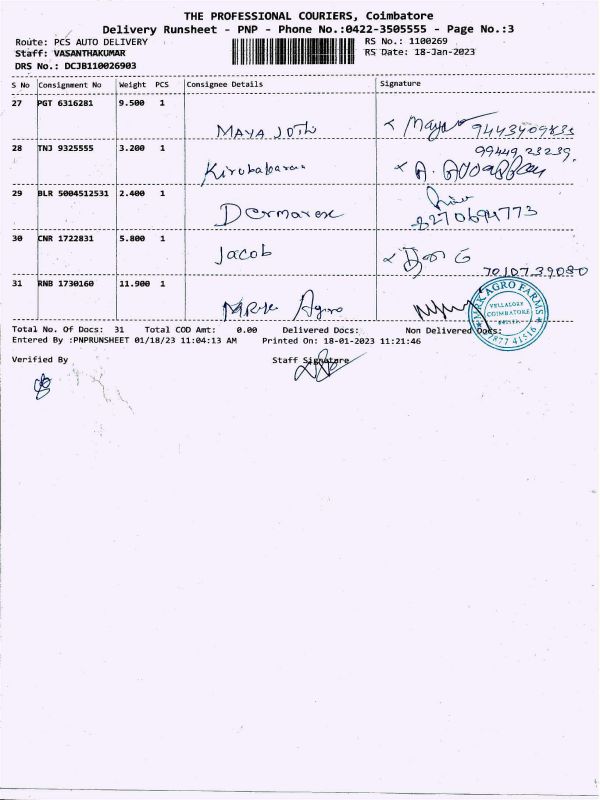 THE PROFESSIONAL COURIERS, Coimbatore
Delivery Runsheet - PNP - Phone No.:0422-3505555 - Page No.:3
Route: PCS AUTO DELIVERY
Staff: VASANTHAKUMAR
DRS No.: DCJB110026903
RS No.: 1100269
RS Date: 18-Jan-2023
S No Consignment No Weight PCS Consignee Details Signature
27 PGT 6316281 9.500 1
MAYA JOTH Maya
28 TNJ 9325555 3.200 1 99449 23239
Kirubakaran
29 BLR 5004512531 2.400 1
8270694773
30 CNR 1722831 5.800 1
Jacob
7010739080
31 RNB 1730160 11.900 1
Agro
MRK AGRO FARMS
VELLALORE
COIMBATORE
Total No. Of Docs: 31 Total COD Amt: 0.00 Delivered Docs: Non Delivered Docs:
Entered By :PNPRUNSHEET 01/18/23 11:04:13 AM Printed On: 18-01-2023 11:21:46
Verified By Staff Signature